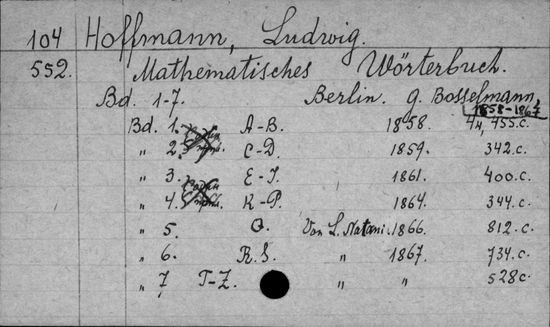 104 Hoffmann, Ludwig.
552. Mathematisches Wörterbuch.
Bd. 1-7. Berlin. G. Bosselmann,
1858-1867
Bd. 1. A-B. 1858. 4 u, 455.c.
„ 2. C-D. 1859. 342.c.
„ 3. E-J. 1861. 400.c.
„ 4. K-P. 1864. 344.c.
„ 5. Q. Von L. Natani. 1866. 812.c.
„ 6. R.S. „ 1867. 734.c.
„ 7 T-Z. „ „ 528c.